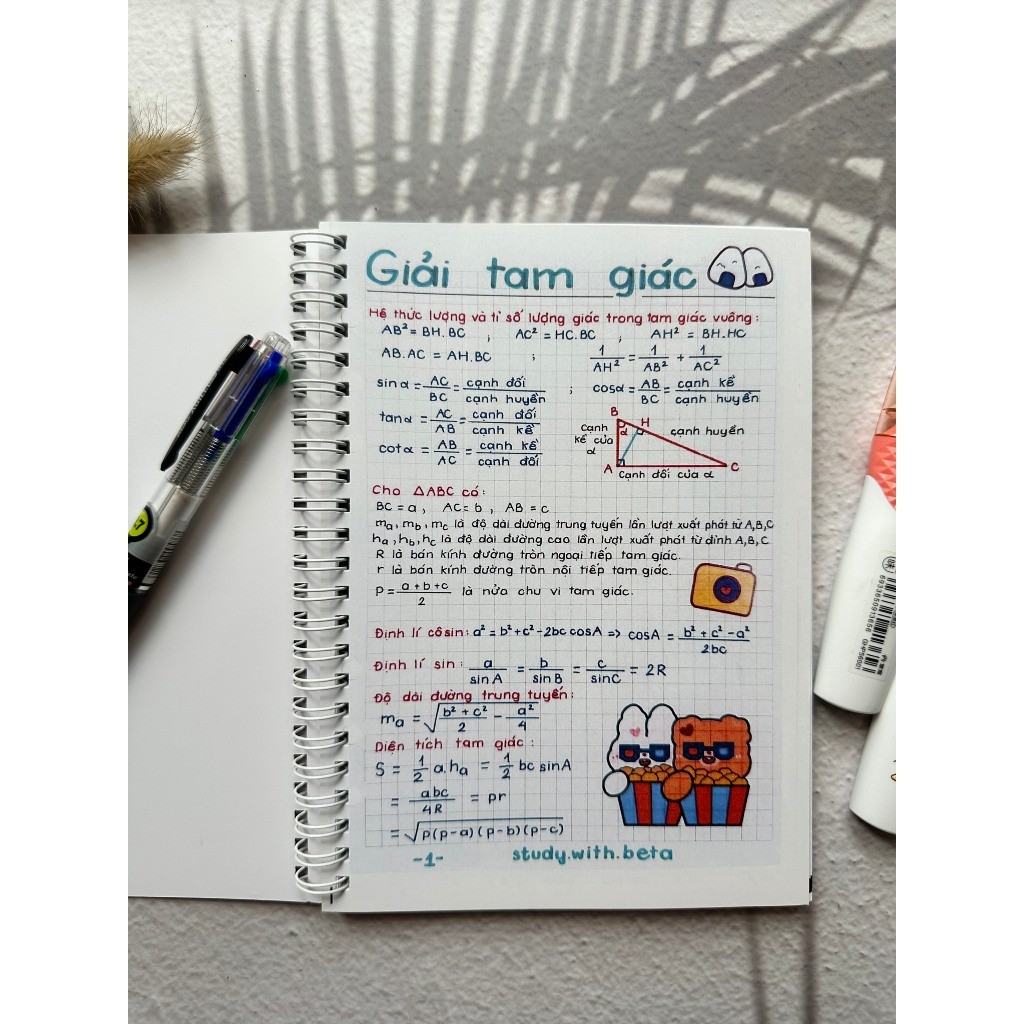 Giải tam giác
Hệ thức lượng và tỉ số lượng giác trong tam giác vuông:
AB² = BH.BC ; AC² = HC.BC ; AH² = BH.HC
AB.AC = AH.BC ; 1/AH² = 1/AB² + 1/AC²
sinα = AC/BC = cạnh đối/cạnh huyền ; cosα = AB/BC = cạnh kề/cạnh huyền
tanα = AC/AB = cạnh đối/cạnh kề
cotα = AB/AC = cạnh kề/cạnh đối
B
H
α
Cạnh kề của α
cạnh huyền
A
C
Cạnh đối của α
Cho ΔABC có:
BC = a, AC = b, AB = c
mₐ, m_b, m_c là độ dài đường trung tuyến lần lượt xuất phát từ A,B,C
hₐ, h_b, h_c là độ dài đường cao lần lượt xuất phát từ đỉnh A,B,C
R là bán kính đường tròn ngoại tiếp tam giác.
r là bán kính đường tròn nội tiếp tam giác.
P = a+b+c/2 là nửa chu vi tam giác.
Định lí côsin: a² = b²+c²-2bc cosA => cosA = b²+c²-a²/2bc
Định lí sin: a/sinA = b/sinB = c/sinC = 2R
Độ dài đường trung tuyến:
mₐ = √(b²+c²/2 - a²/4)
Diện tích tam giác:
S = 1/2 a.hₐ = 1/2 bc sinA
= abc/4R = pr
= √p(p-a)(p-b)(p-c)
-1-
study.with.beta
6933650913656